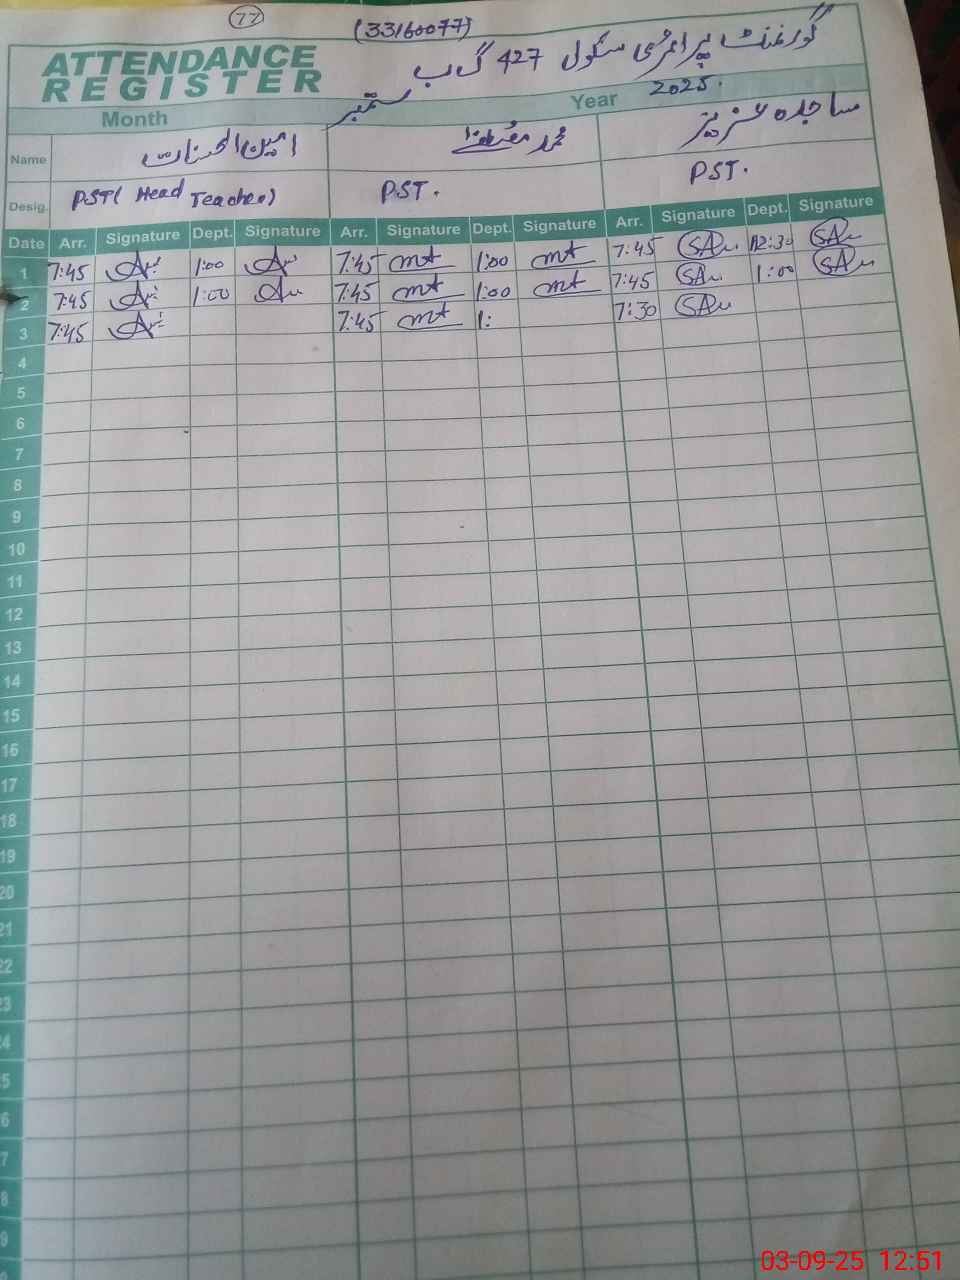 77
(33160077)
گورنمنٹ پرائمری سکول 427 گ ب
ATTENDANCE
REGISTER
Month ستمبر Year 2025.
Name امین الحسنات محمد مصطفیٰ ساجدہ عزیز
Desig. PST( Head Teacher) PST. PST.
Date Arr. Signature Dept. Signature Arr. Signature Dept. Signature Arr. Signature Dept. Signature
1 7:45 1:00 7:45 mt 1:00 mt 7:45 SA 12:30 SA
2 7:45 1:00 7:45 mt 1:00 mt 7:45 SA 1:00 SA
3 7:45 7:45 mt 1: 7:30 SA
4
5
6
7
8
9
10
11
12
13
14
15
16
17
18
19
20
21
22
23
4
5
6
7
8
9
03-09-25 12:51